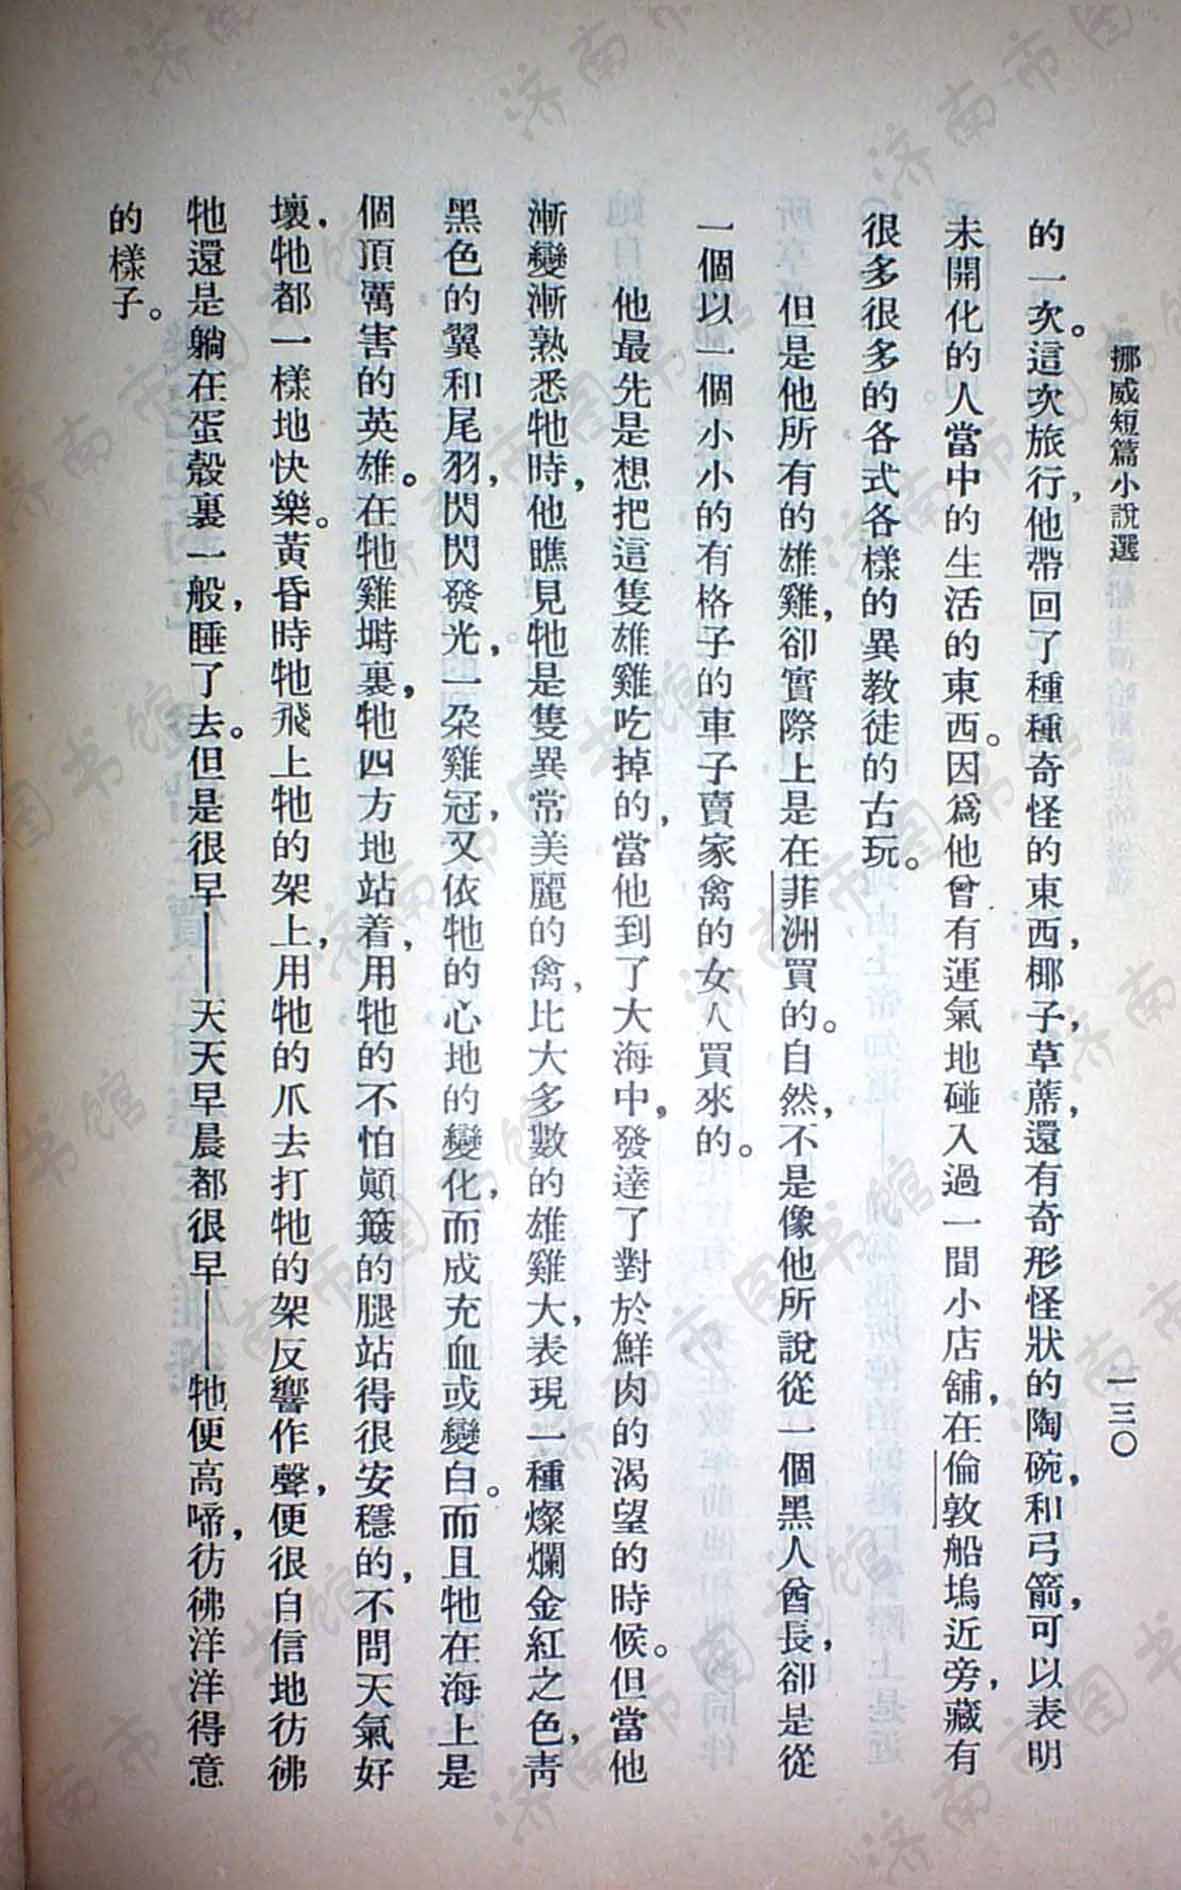 挪威短篇小說選
一三〇
的一次。這次旅行，他帶回了種種奇怪的東西，椰子，草蓆，還有奇形怪狀的陶碗，和弓箭，可以表明
未開化的人當中的生活的東西。因爲他曾有運氣地碰入過一間小店舖，在倫敦船塢近旁，藏有
很多很多的各式各樣的異教徒的古玩。
但是他所有的雄雞，卻實際上是在菲洲買的。自然，不是像他所說從一個黑人酋長，卻是從
一個以一個小小的有格子的車子賣家禽的女人買來的。
他最先是想把這隻雄雞吃掉的，當他到了大海中，發達了對於鮮肉的渴望的時候。但當他
漸變漸熟悉牠時，他瞧見牠是隻異常美麗的禽，比大多數的雄雞大，表現一種燦爛金紅之色，青
黑色的翼和尾羽，閃閃發光，一朶雞冠，又依牠的心地的變化，而成充血或變白。而且牠在海上是
個頂厲害的英雄。在牠雞塒裏，牠四方地站着，用牠的不怕顚簸的腿站得很安穩的，不問天氣好
壞，牠都一樣地快樂。黃昏時牠飛上牠的架上，用牠的爪去打牠的架反響作聲，便很自信地彷彿
牠還是躺在蛋殼裏一般，睡了去。但是很早——天天早晨都很早——牠便高啼，彷彿洋洋得意
的樣子。